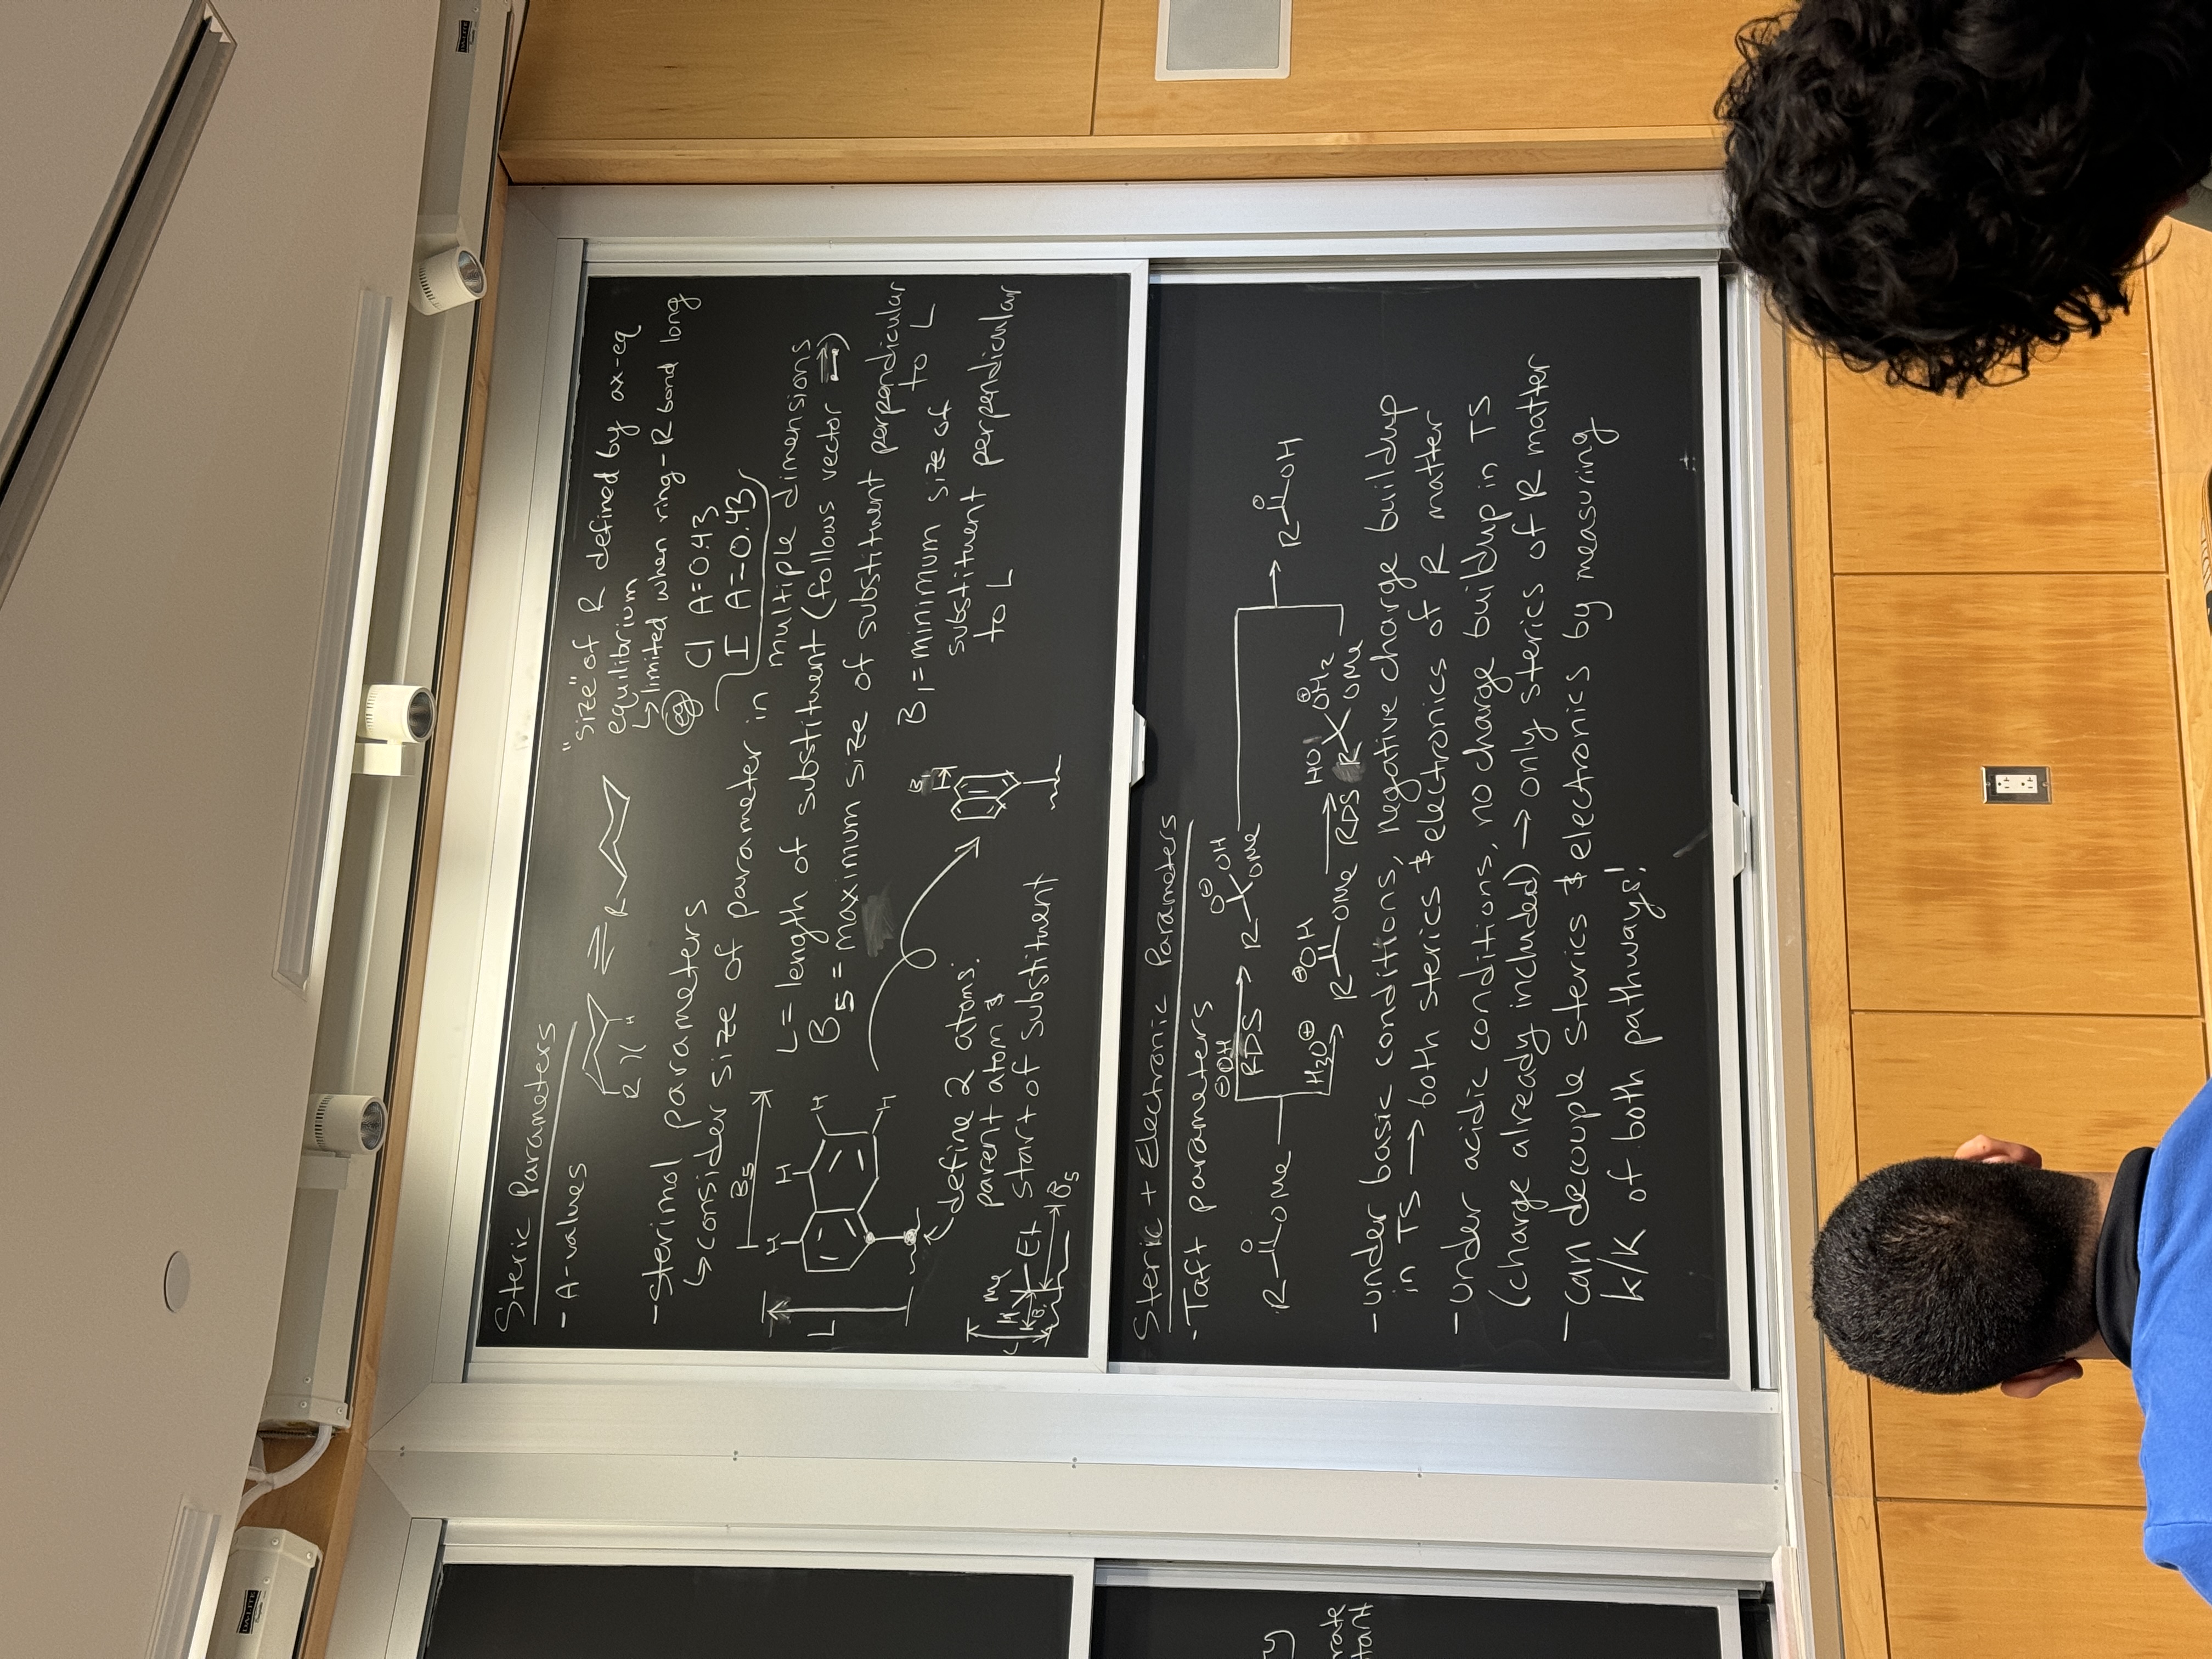 DA-LITE
DA-LITE
Steric Parameters
- A-values
R H
R
"size" of R defined by ax-eq
equilibrium
↳ limited when ring-R bond long
eg
Cl A=0.43
I A=0.43
- sterimol parameters
↳ consider size of parameter in multiple dimensions
B5
L
H
H
H
H
L = length of substituent (follows vector ⇒)
B5 = maximum size of substituent perpendicular
to L
B1 = minimum size of
substituent perpendicular
to L
B1
define 2 atoms:
parent atom &
start of substituent
L
H
Me
Et
B1
B5
Steric + Electronic Parameters
- Taft parameters
⊖OH
RDS
O⊖
OH
R
OMe
O
R
OMe
H3O⊕
⊕OH
R
OMe
RDS
HO
⊕
OH2
R
OMe
O
R
OH
- under basic conditions, negative charge buildup
in TS → both sterics & electronics of R matter
- under acidic conditions, no charge buildup in TS
(charge already included) → only sterics of R matter
- can decouple sterics & electronics by measuring
k/k of both pathways!
y
rate
tant